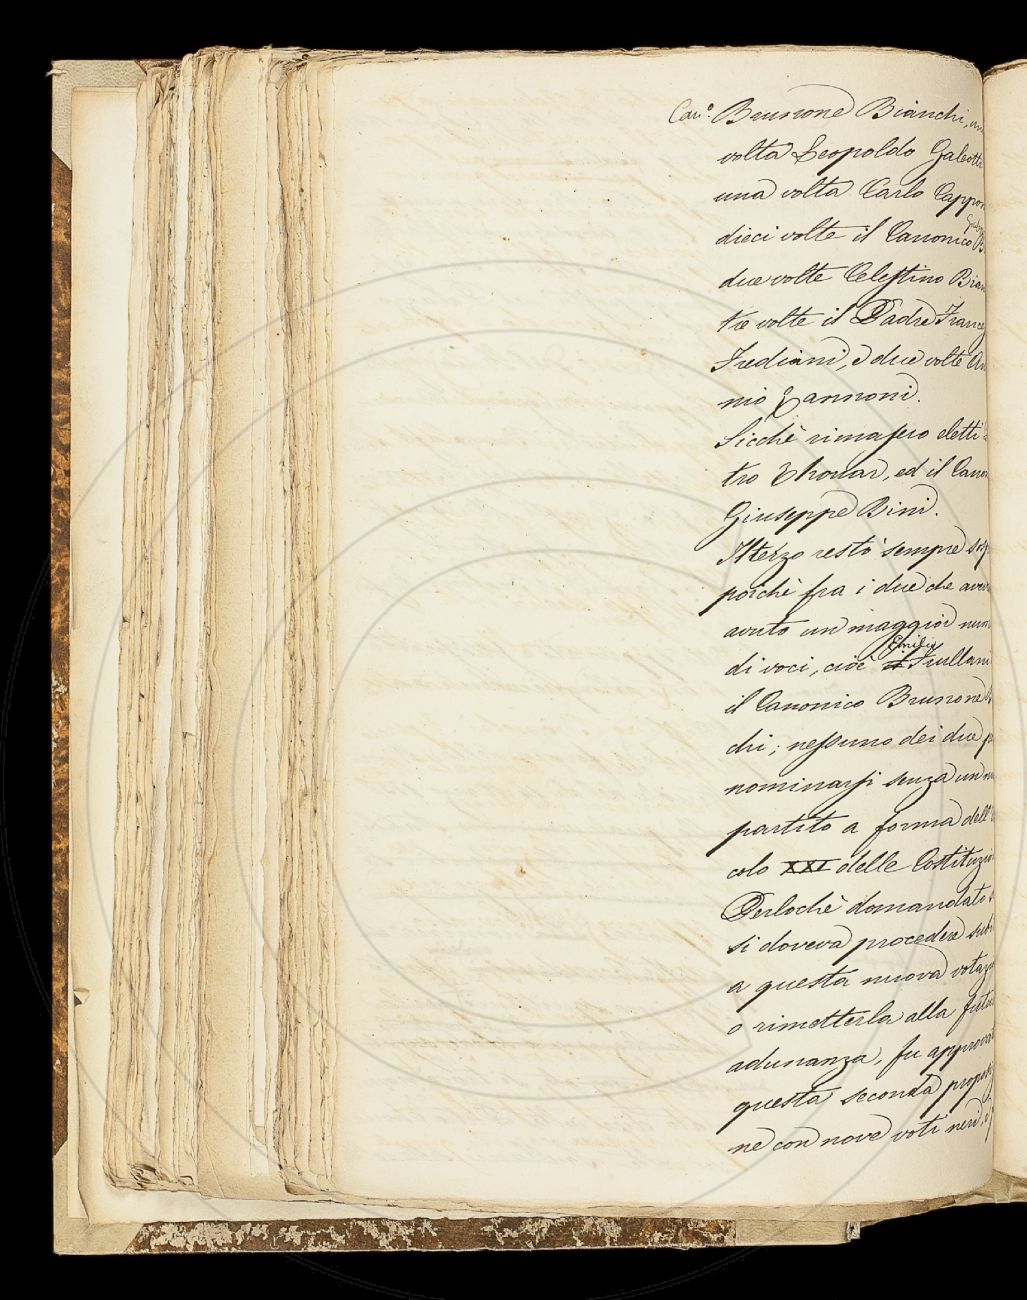 Can.º Brunone Bianchi, un
volta Leopoldo Galeotti
una volta Carlo Cappon
dieci volte il Canonico
due volte Celestino Bian
tre volte il Padre Franc
Frediani, e due volte An
nio Zannoni.
Sicchè rimasero eletti
tro Thouar, ed il Canon
Giuseppe Bini.
Il terzo restò sempre sosp
poichè fra i due che aveva
avuto un maggior num
di voci, cioè Emilio Frullani
il Canonico Brunone B
chi; nessuno dei due p
nominarsi senza un nu
partito a forma dell'
colo XXI delle Costituzio
Perlochè domandato s
si doveva procedere sub
a questa nuova votazio
o rimetterla alla futu
adunanza, fu approvat
questa seconda propos
ne con nove voti neri,